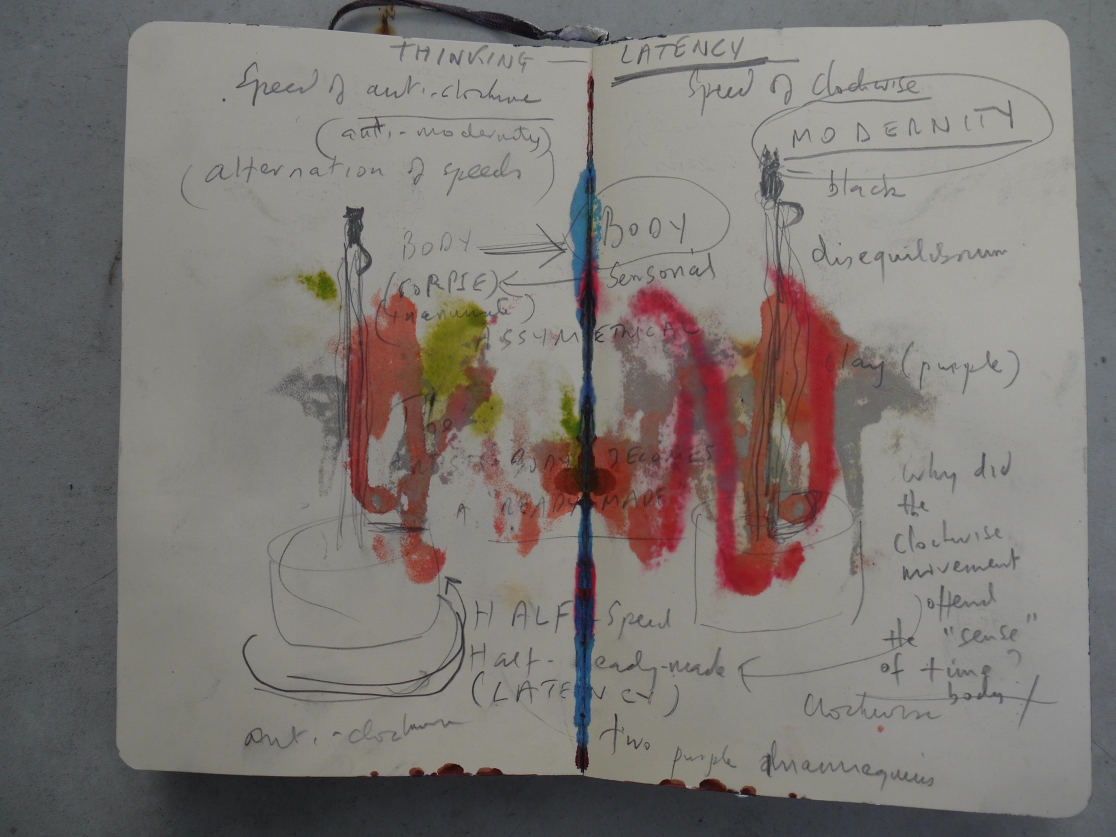 THINKING — LATENCY
Speed of anti-clockwise
(anti-modernity)
(alternation of speeds)
BODY
(CORPSE)
(inanimate)
ASSYMETRICAL
BODY BECOMES
A READY-MADE
HALF-Speed
Half-ready-made
(LATENCY)
anti-clockwise
Speed of Clockwise
MODERNITY
black
BODY
Sensorial
disequilibrium
clay (purple)
Why did
the
clockwise
movement
offend
the "sense"
of time?
body
Clockwise
two purple mannequins